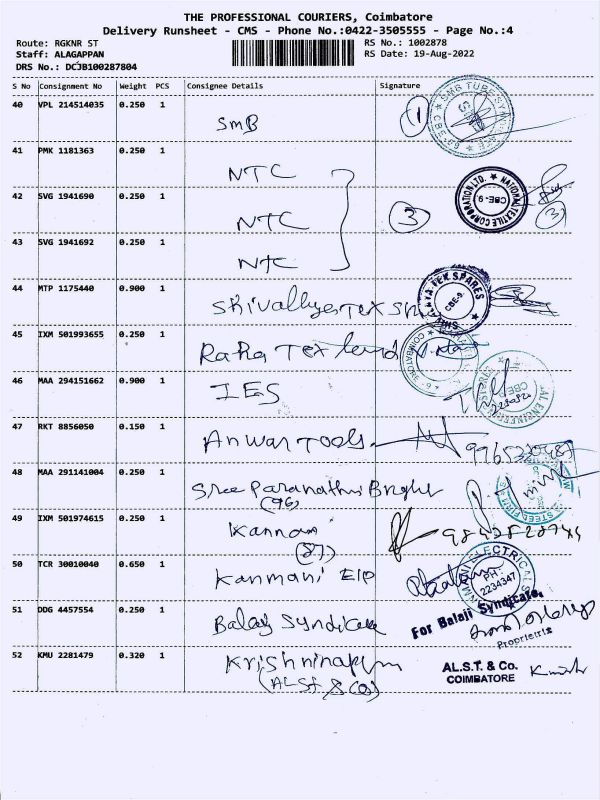 THE PROFESSIONAL COURIERS, Coimbatore
Delivery Runsheet - CMS - Phone No.:0422-3505555 - Page No.:4
Route: RGKNR ST
RS No.: 1002878
Staff: ALAGAPPAN
RS Date: 19-Aug-2022
DRS No.: DCJB100287804
S No Consignment No Weight PCS Consignee Details Signature
40 VPL 214514035 0.250 1 SMB 1
41 PMK 1181363 0.250 1 NTC
42 SVG 1941690 0.250 1 NTC 3 3
NATIONAL TEXTILE CORPORATION LTD. CBE-9
43 SVG 1941692 0.250 1 NTC
44 MTP 1175440 0.900 1
TEX SPARES CBE-9
45 IXM 501993655 0.250 1 Raha Tex
46 MAA 294151662 0.900 1 IES
47 RKT 8856050 0.150 1 Anwar Tools
48 MAA 291141004 0.250 1 Sree
(96)
49 IXM 501974615 0.250 1 Kannan
(87)
50 TCR 30010040 0.650 1 Kanmani
ELECTRICALS PH: 2234347
51 DDG 4457554 0.250 1 Balaji Syndicate
For Balaji Syndicate,
Proprietrix
52 KMU 2281479 0.320 1
AL.S.T. & Co.
COIMBATORE